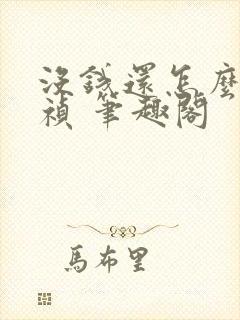 沒錢還怎麼
禎 筆趣閣
馬布里